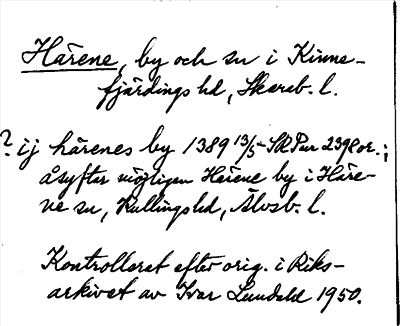 Härene, by och sn i Kinne-
fjärdings hd, Skarab. l.
? ij härenes by 1389 13/5 Sk Pur 2398 or.;
åsyftar möjligen Härene by i Häre-
ne sn, Kullings hd, Älvsb. l.
Kontrollerat efter orig. i Riks-
arkivet av Ivar Lundahl 1950.